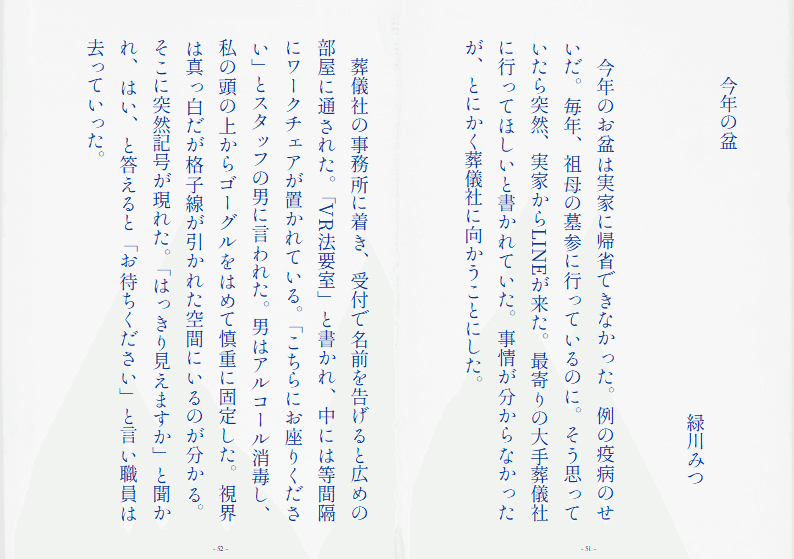 今年の盆
緑川みつ
今年のお盆は実家に帰省できなかった。例の疫病のせ
いだ。毎年、祖母の墓参に行っているのに。そう思って
いたら突然、実家からLINEが来た。最寄りの大手葬儀社
に行ってほしいと書かれていた。事情が分からなかった
が、とにかく葬儀社に向かうことにした。
- 51 -
葬儀社の事務所に着き、受付で名前を告げると広めの
部屋に通された。「VR法要室」と書かれ、中には等間隔
にワークチェアが置かれている。「こちらにお座りくださ
い」とスタッフの男に言われた。男はアルコール消毒し、
私の頭の上からゴーグルをはめて慎重に固定した。視界
は真っ白だが格子線が引かれた空間にいるのが分かる。
そこに突然記号が現れた。「はっきり見えますか」と聞か
れ、はい、と答えると「お待ちください」と言い職員は
去っていった。
- 52 -